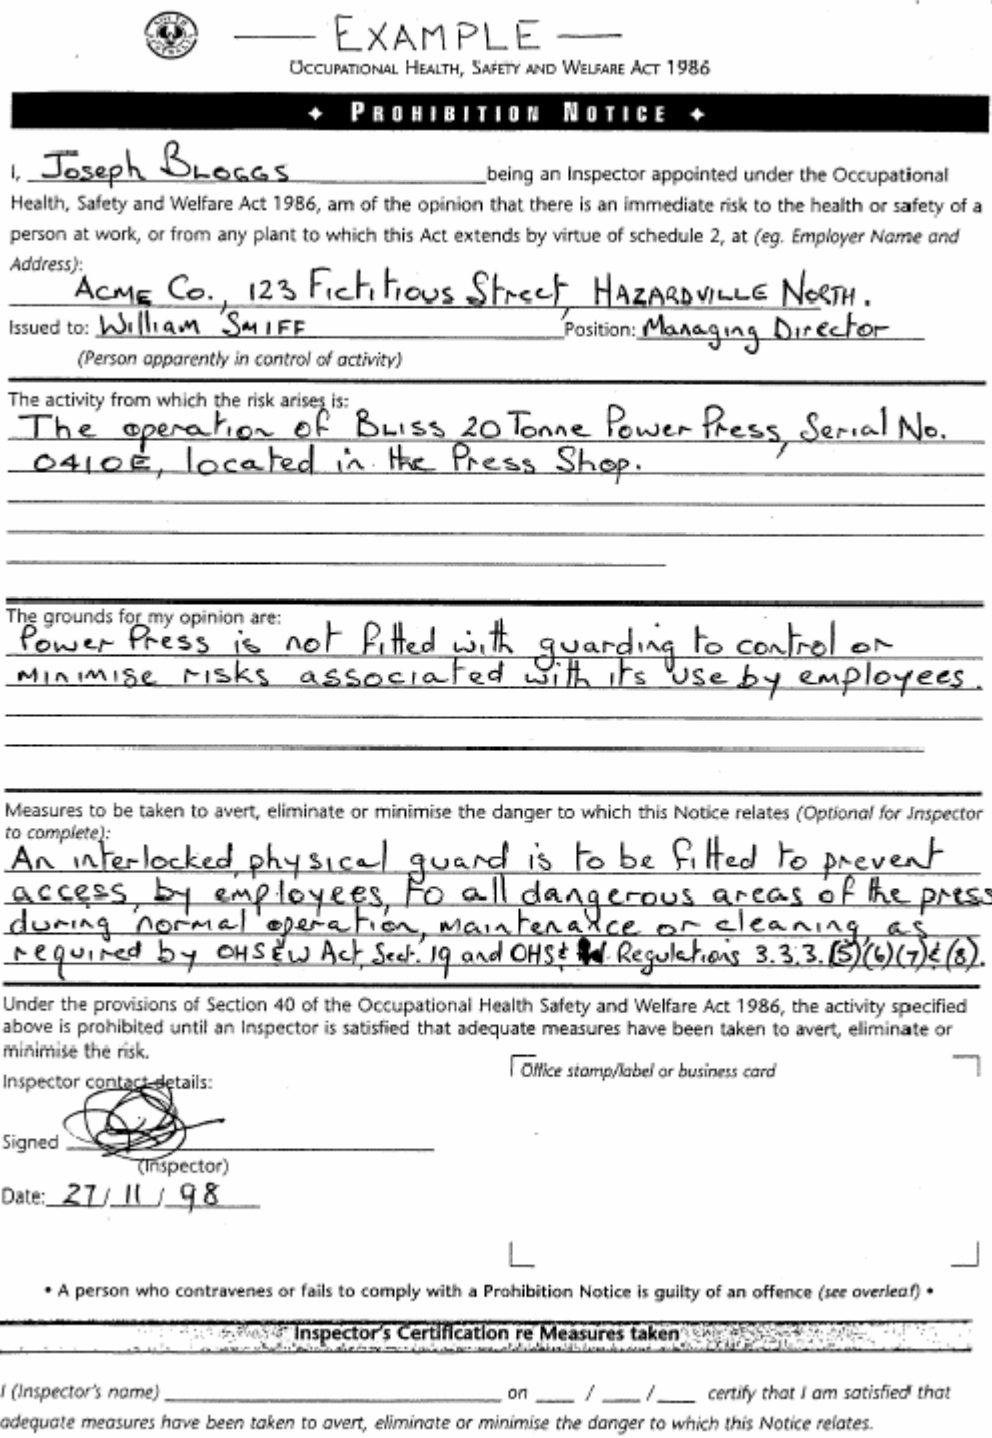 SOUTH AUSTRALIA
EXAMPLE
OCCUPATIONAL HEALTH, SAFETY AND WELFARE ACT 1986
PROHIBITION NOTICE
I, Joseph BLOGGS being an Inspector appointed under the Occupational
Health, Safety and Welfare Act 1986, am of the opinion that there is an immediate risk to the health or safety of a
person at work, or from any plant to which this Act extends by virtue of schedule 2, at (eg. Employer Name and
Address):
ACME Co., 123 Fictitious Street, HAZARDVILLE NORTH.
Issued to: William SMIFF Position: Managing Director
(Person apparently in control of activity)
The activity from which the risk arises is:
The operation of BLISS 20 Tonne Power Press, Serial No.
0410E, located in the Press Shop.
The grounds for my opinion are:
Power Press is not fitted with guarding to control or
minimise risks associated with its use by employees.
Measures to be taken to avert, eliminate or minimise the danger to which this Notice relates (Optional for Inspector
to complete):
An interlocked physical guard is to be fitted to prevent
access, by employees, to all dangerous areas of the press
during normal operation, maintenance or cleaning, as
required by OHS&W Act, Sect. 19 and OHS& W Regulations 3.3.3.(5)(6)(7)&(8).
Under the provisions of Section 40 of the Occupational Health Safety and Welfare Act 1986, the activity specified
above is prohibited until an Inspector is satisfied that adequate measures have been taken to avert, eliminate or
minimise the risk.
Inspector contact details:
Office stamp/label or business card
Signed
(Inspector)
Date: 27/11/98
• A person who contravenes or fails to comply with a Prohibition Notice is guilty of an offence (see overleaf) •
Inspector's Certification re Measures taken
I (Inspector's name) on / / certify that I am satisfied that
adequate measures have been taken to avert, eliminate or minimise the danger to which this Notice relates.